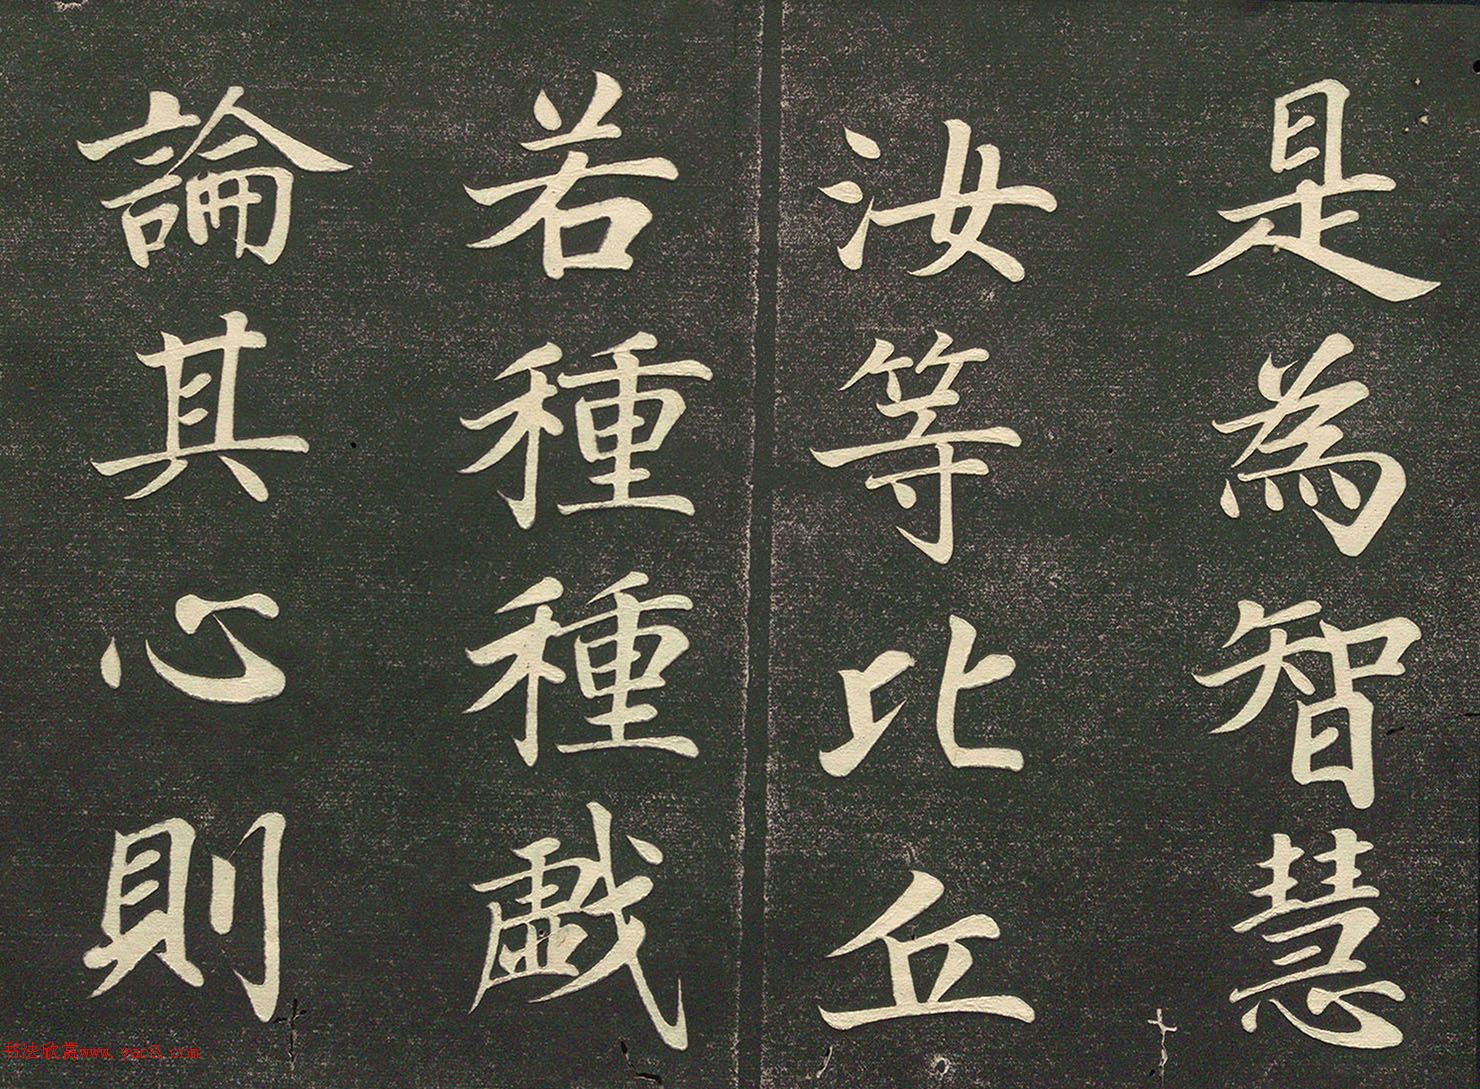 是為智慧
汝等比丘
若種種戯
論其心則
书法欣赏www.yac8.com